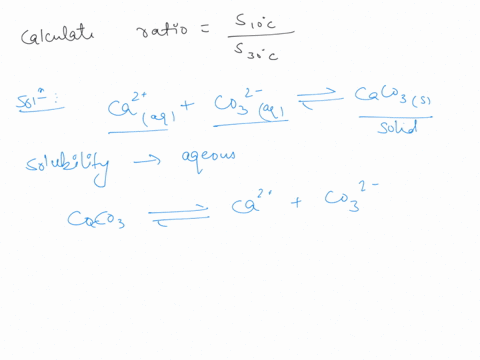 Calculate ratio = S10°C / S30°C
Solⁿ: Ca²⁺(aq) + CO3²⁻(aq) ⇌ CaCO3(s)
solid
solubility → aqeous
CaCO3 ⇌ Ca²⁺ + CO3²⁻